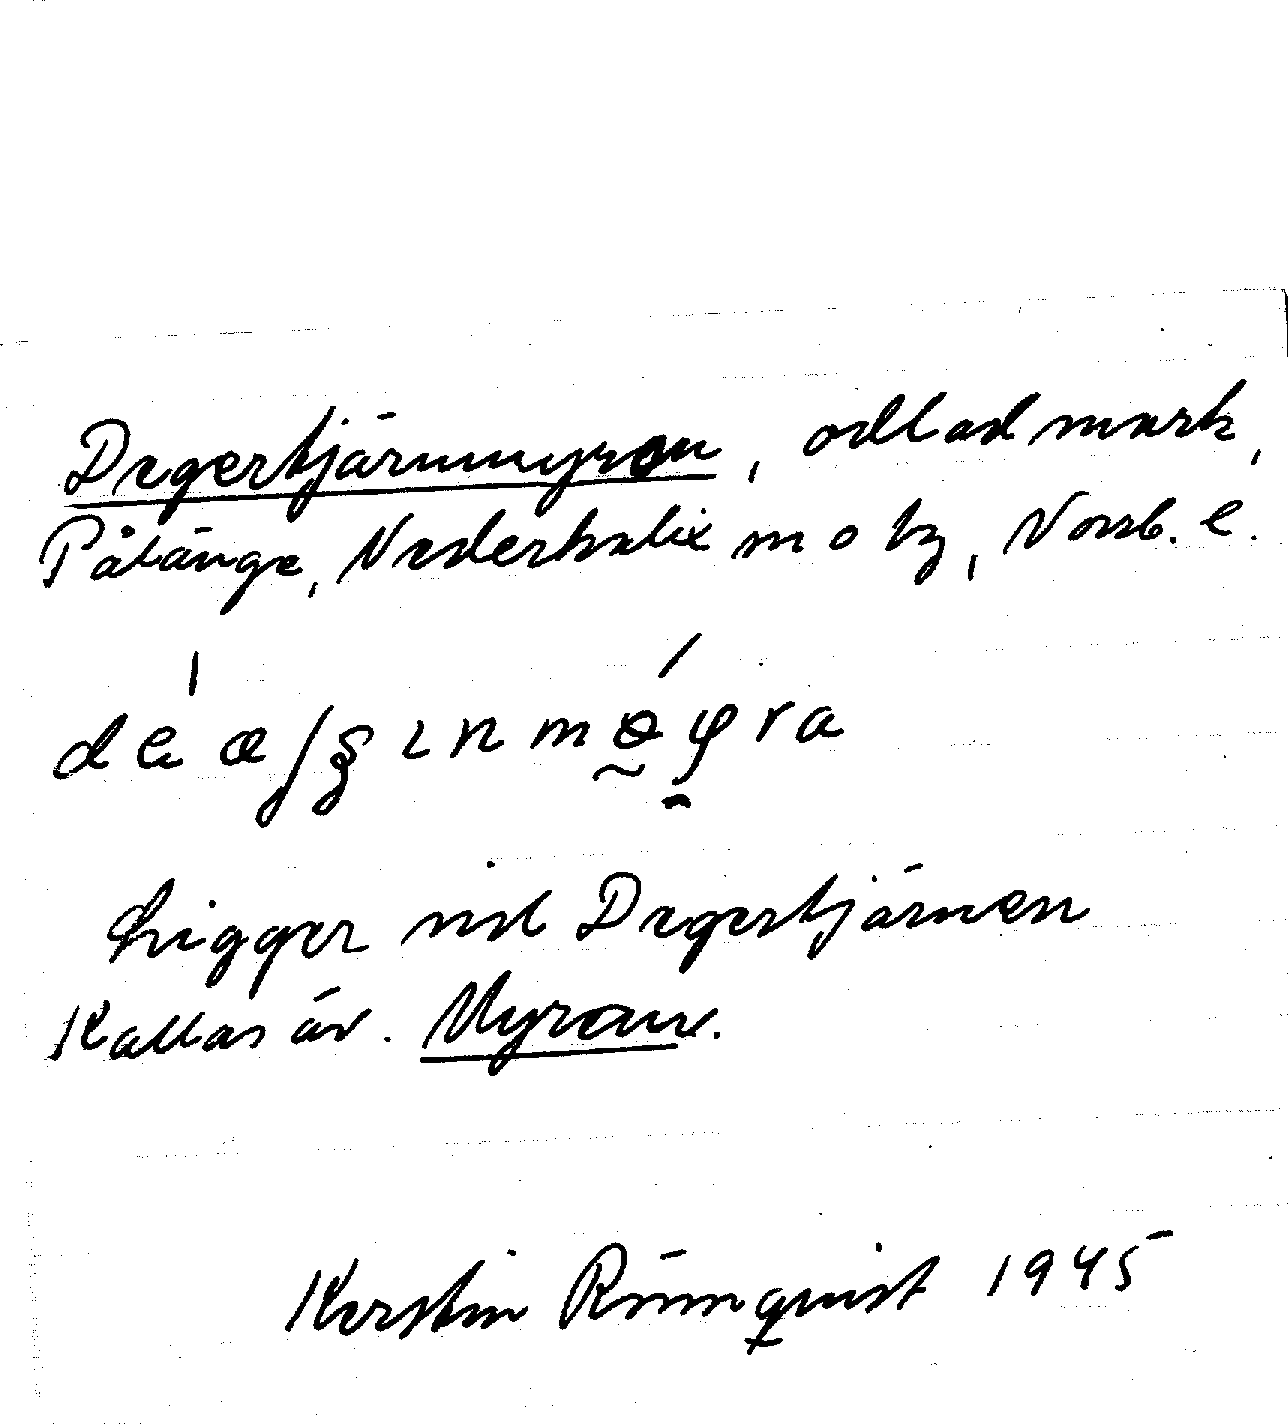 Degertjärnmyran, odlad mark,
Pålänge, Nederkalix sn o tg, Norrb. l.
Ligger vid Degertjärnen
Kallas äv. Myran.
Kerstin Rönnquist 1945